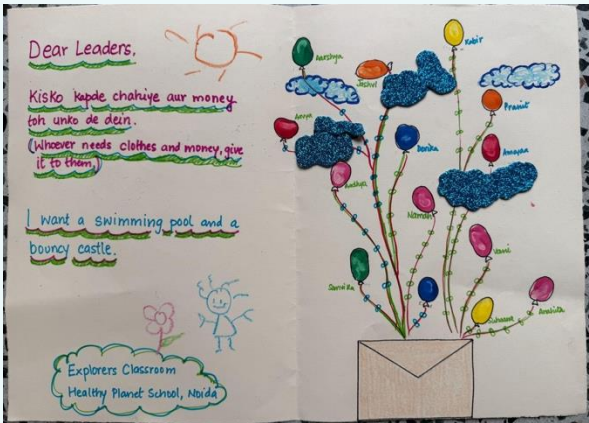 Dear Leaders,
Kisko kapde chahiye aur money
toh unko de dein.
(Whoever needs clothes and money, give
it to them,)
I want a swimming pool and a
bouncy castle.
Explorers Classroom
Healthy Planet School, Noida
Aarshya
Kabir
Jashvi
Pranit
Anvya
Danika
Amayraa
Aashya
Naman
Vami
Samika
Anabita